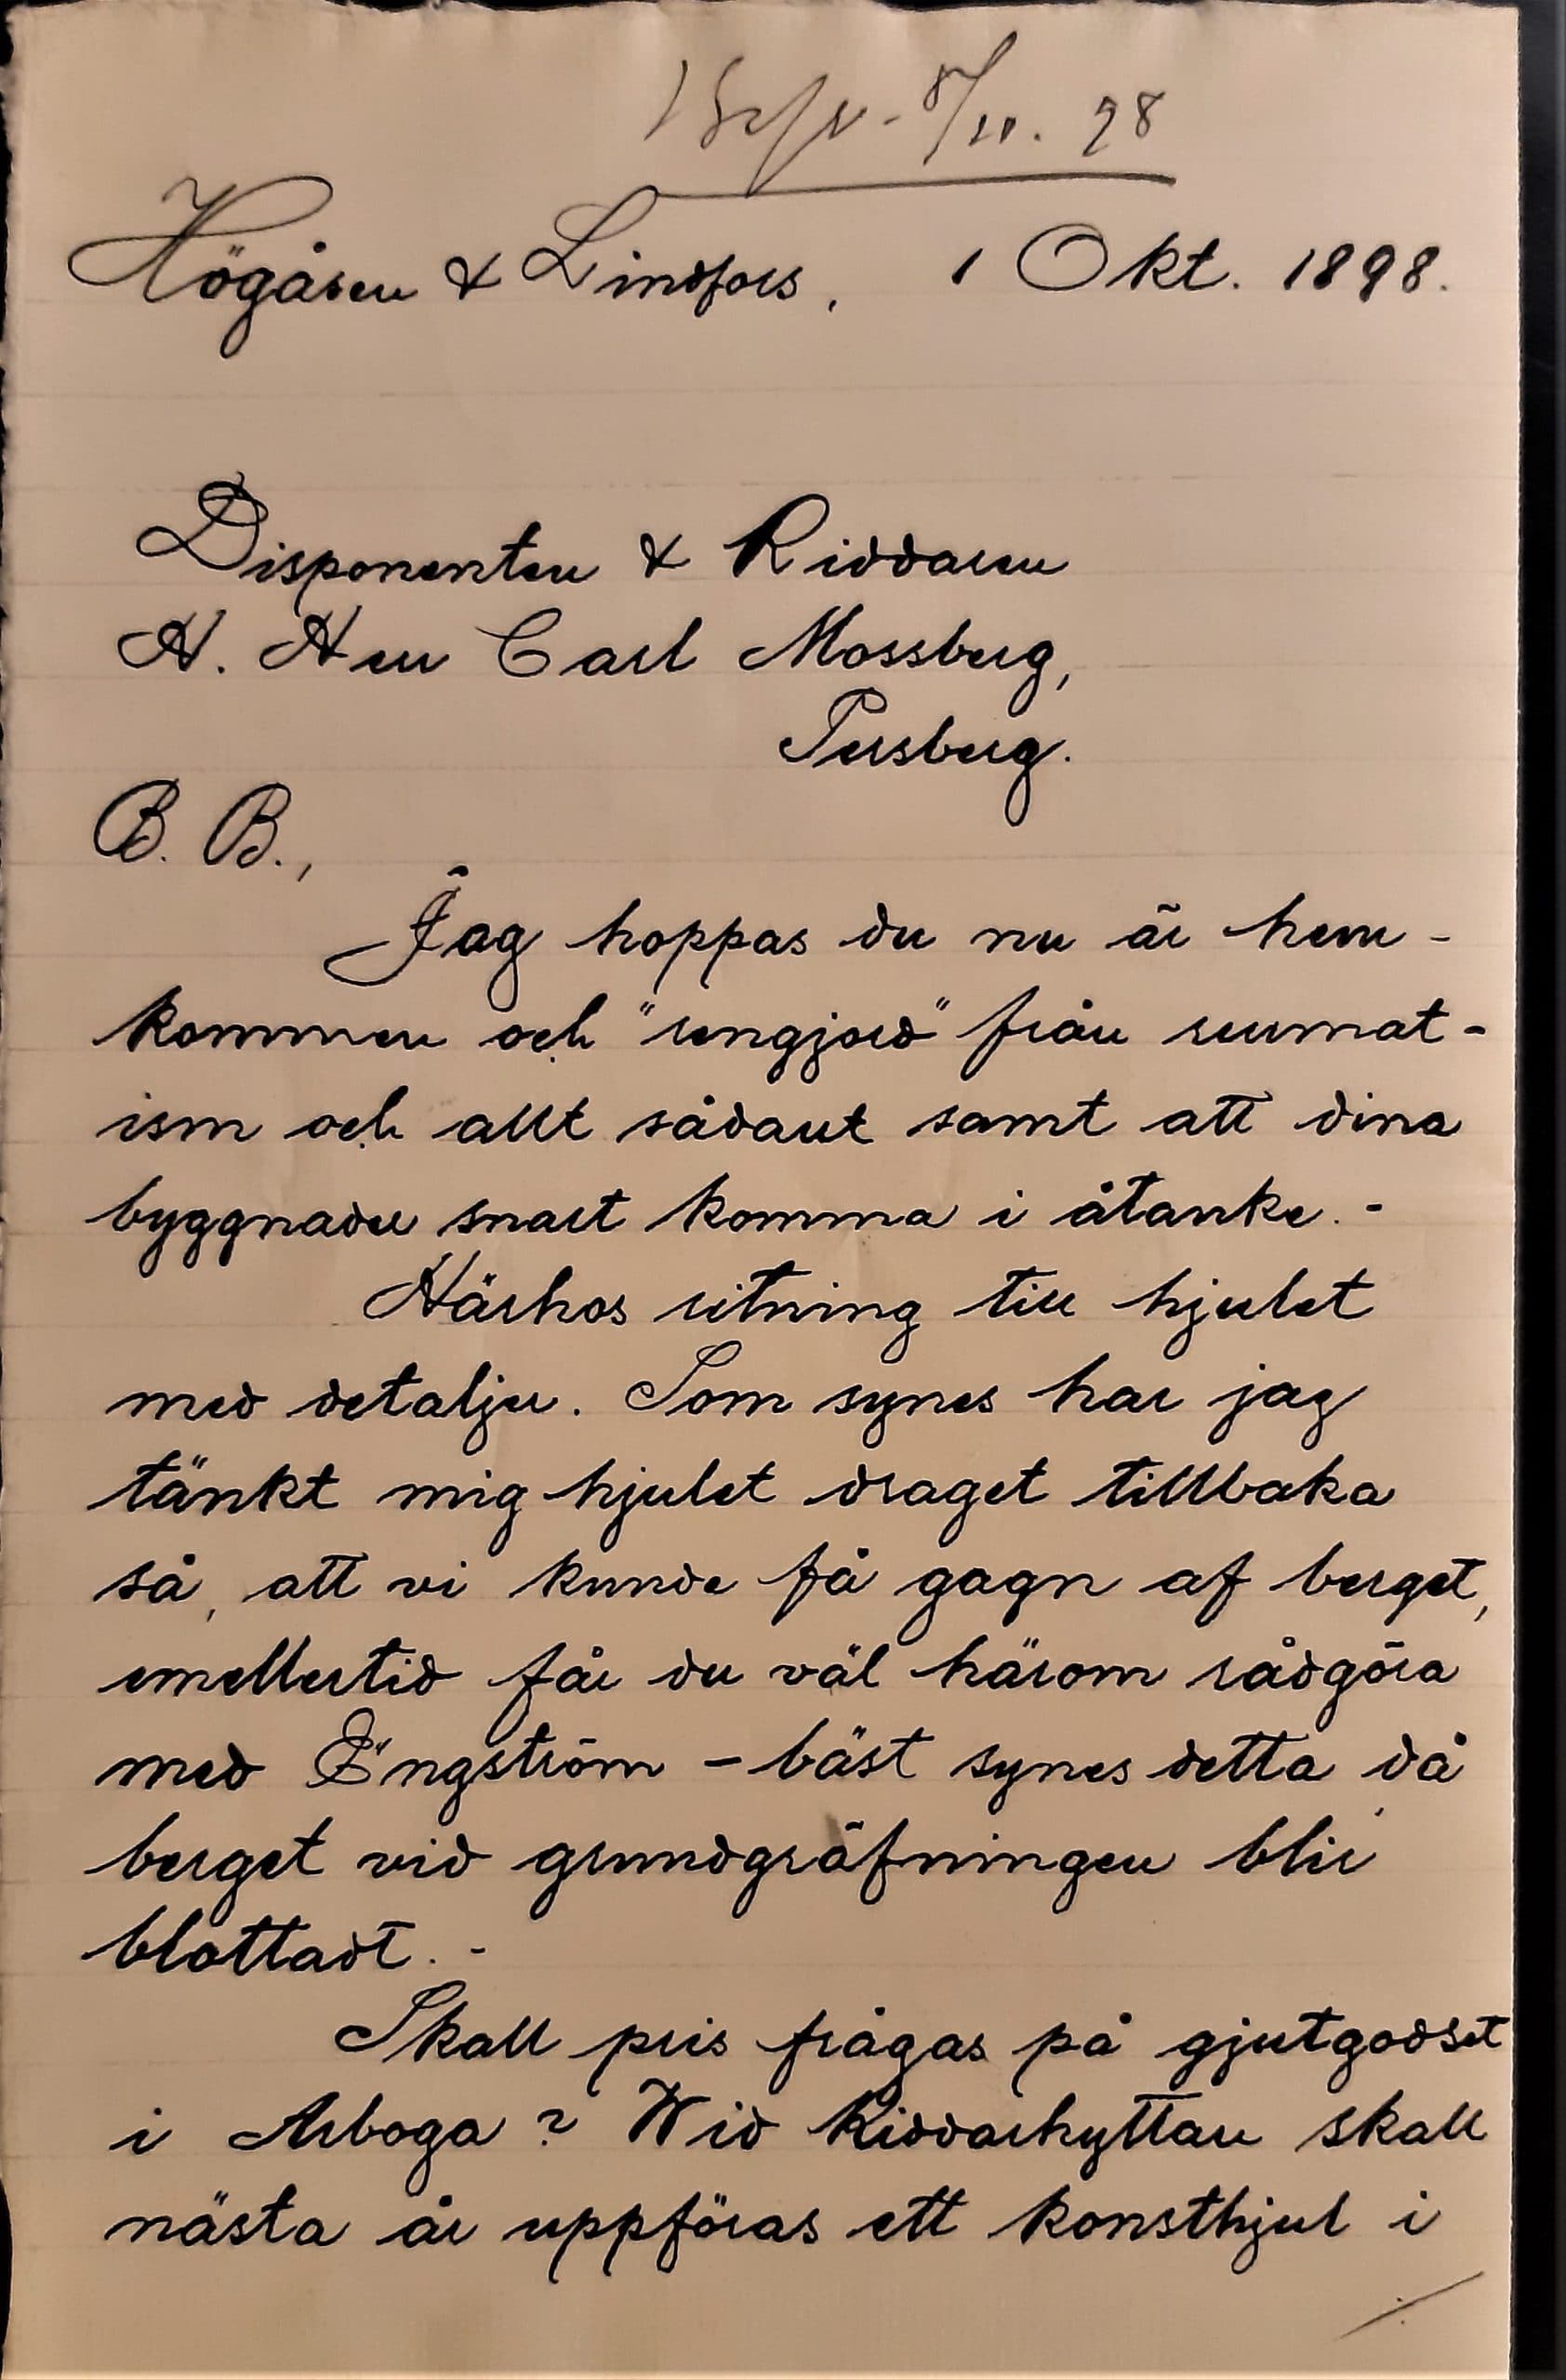 8/10. 98
Högåsen & Lindfors, 1 Okt. 1898.
Disponenten & Riddaren
H. Herr Carl Mossberg,
Persberg.
B. B.,
Jag hoppas du nu är hem-
kommen och "rengjord" från reumat-
ism och allt sådant samt att dina
byggnader snart komma i åtanke. -
Härhos ritning till hjulet
med detaljer. Som synes har jag
tänkt mig hjulet draget tillbaka
så, att vi kunde få gagn af berget,
emellertid får du väl härom rådgöra
med Engström - bäst synes detta då
berget vid grundgräfningen blir
blottadt. -
Skall pris frågas på gjutgodset
i Arboga? Wid Riddarhyttan skall
nästa år uppföras ett konsthjul i